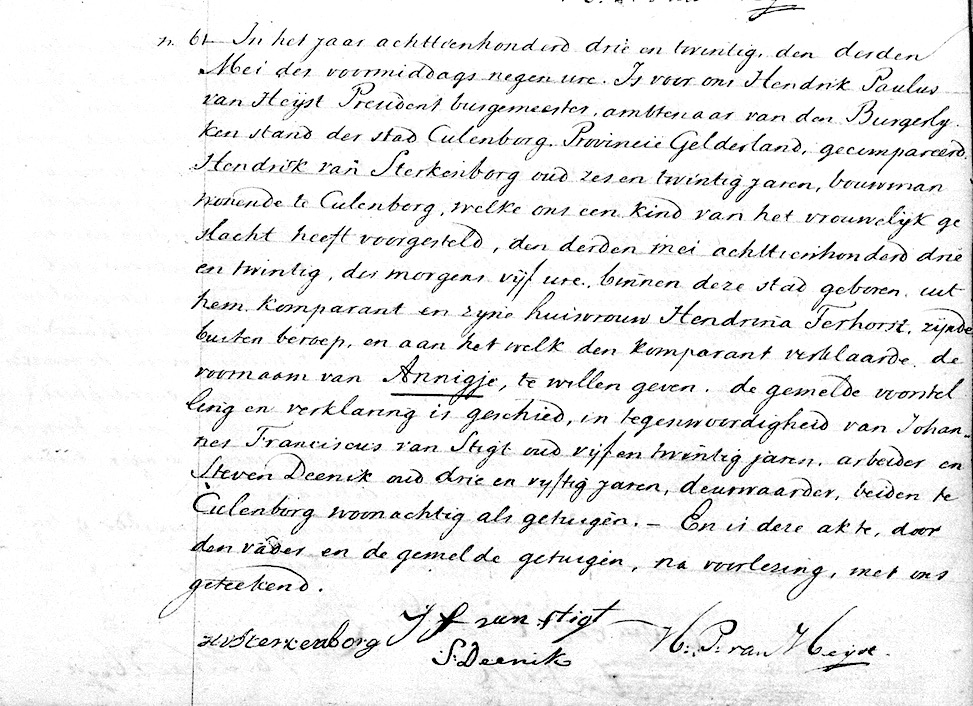 n. 61 In het jaar achttienhonderd drie en twintig, den derden
Mei des voormiddags negen ure. Is voor ons Hendrik Paulus
van Heyst President burgemeester, ambtenaar van den Burgerly
ken stand der stad Culenborg Provincie Gelderland, gecompareerd,
Hendrik van Sterkenborg oud zes en twintig jaren, bouwman
wonende te Culenborg, welke ons een kind van het vrouwelijk ge
slacht heeft voorgesteld, den derden mei achttienhonderd drie
en twintig, des morgens vijf ure, binnen deze stad geboren, uit
hem komparant en zyne huisvrouw Hendrina Terhorst, zijnde
buiten beroep, en aan het welk den komparant verklaarde de
voornaam van Annigje, te willen geven. de gemelde voorstel
ling en verklaring is geschied, in tegenwoordigheid van Johan-
nes Franciscus van Stigt oud vijf en twintig jaren, arbeider en
Steven Deenik oud drie en vyftig jaren, deurwaarder, beiden te
Culenborg woonachtig als getuigen. – En is deze akte, door
den vader en de gemelde getuigen, na voorlezing, met ons
geteekend.
HvSterkenborg J F van Stigt H: P: van Heyst.
S: Deenik